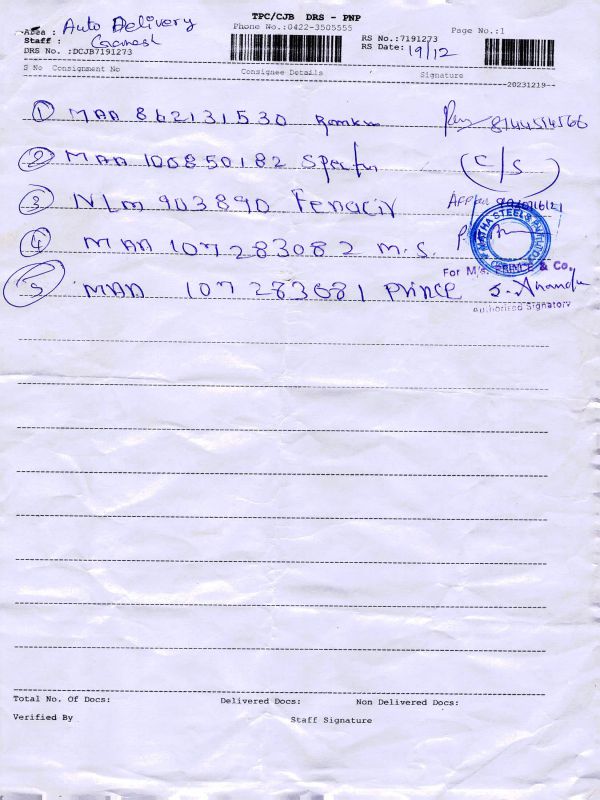 TPC/CJB DRS - PNP
Area : Auto Delivery
Phone No.:0422-3505555
Page No.:1
Staff : Ganesh
RS No.:7191273
DRS No. :DCJB7191273
RS Date: 19/12
S No Consignment No Consignee Details Signature
20231219
1 MAA 862131530 8144514566
2 MAA 100850182 C/S
3 NLM 903890
4 MAA 107283082 M.S.
MATHA STEELS
For M/s. PRINCE & Co.
5 MAA 107283681 Prince S. Anandu
Authorised Signatory
Total No. Of Docs: Delivered Docs: Non Delivered Docs:
Verified By Staff Signature